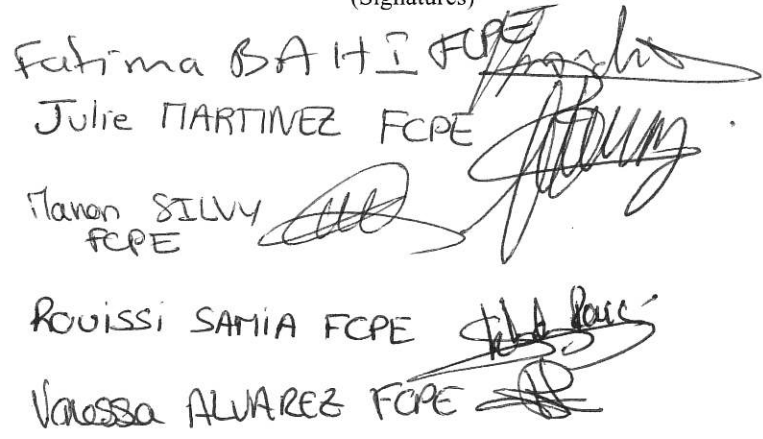 (Signatures)
Fatima BAHI FCPE
Julie MARTINEZ FCPE
Manon SILVY
FCPE
ROUISSI SAMIA FCPE
Vanessa ALVAREZ FCPE